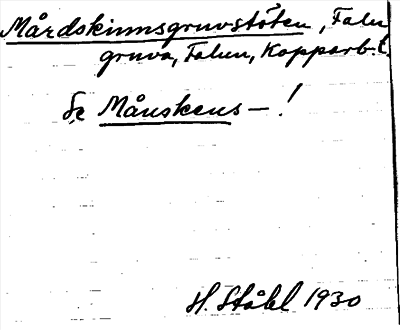 Mårdskinnsgruvstöten, Falu
gruva, Falun, Kopparb. l.
Se Månskens – !
H. Ståhl 1930